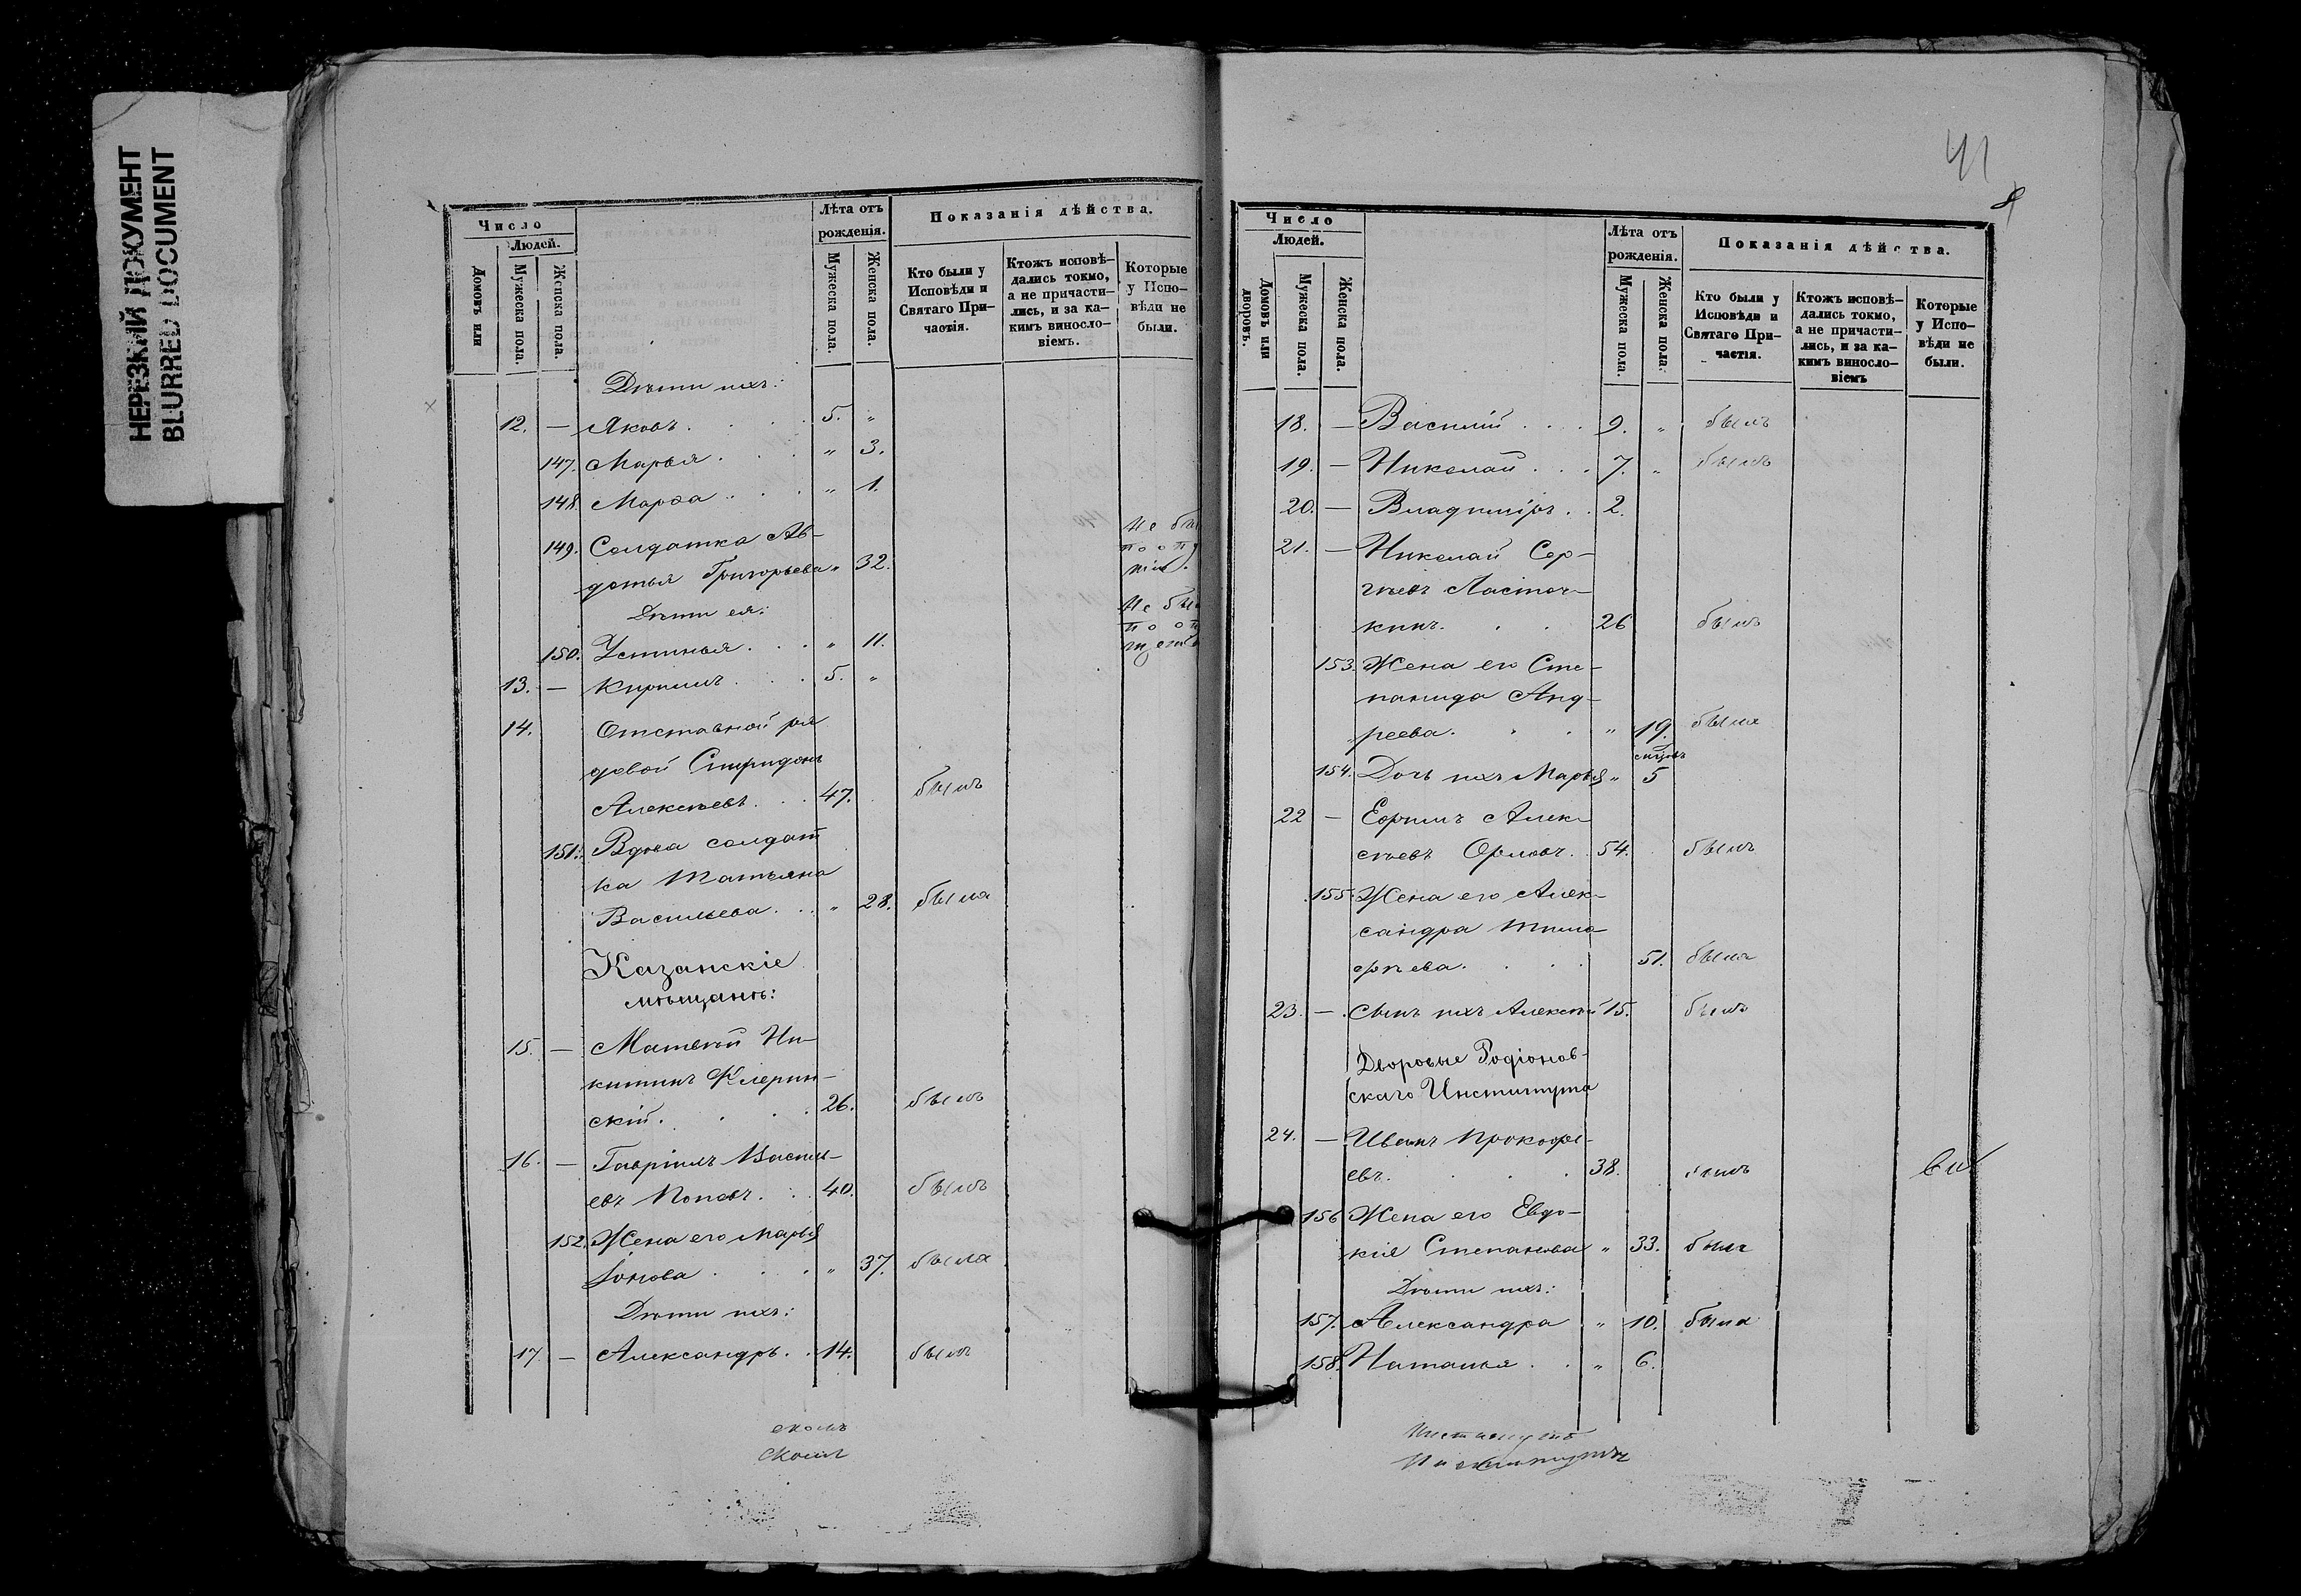 НЕРЕЗКИЙ ДОКУМЕНТ
BLURRED DOCUMENT
Число
Людей.
Домовъ или
Мужеска пола.
Женска пола.
Лѣта отъ
рожденія.
Мужеска пола.
Женска пола.
Показанія дѣйства.
Кто были у
Исповѣди и
Святаго При-
частія.
Ктожъ исповѣ-
дались токмо,
а не причасти-
лись, и за ка-
кимъ виносло-
віемъ.
Которые
у Испо-
вѣди не
были.
Дѣти ихъ:
12. — Яковъ . . . . 5. „
147. Марья . . . „ 3.
148. Марѳа . . . „ 1.
149. Солдатка Ав-
дотья Григорьева „ 32.
Не бы
по оп
Дѣти ея:
Не бы
по оп
150. Устинья . . . „ 11.
13. — Кириллъ . . . 5. „
14. Отставной ря
довой Спиридонъ
Алексѣевъ . . . 47. былъ
151. Вдова солдат
ка Татьяна
Васильева . . . „ 28. была
Казанскіе
мѣщане:
15. — Матвѣй Ни-
китинъ Клерин-
скій . . . 26. былъ
16. — Гавріилъ Василь-
евъ Поповъ . . . 40. былъ
152. Жена его Марья
Іонова . . . . „ 37. была
Дѣти ихъ:
17. — Александръ . . 14. былъ
41
8
Число
Людей.
Домовъ или
дворовъ.
Мужеска пола.
Женска пола.
Лѣта отъ
рожденія.
Мужеска пола.
Женска пола.
Показанія дѣйства.
Кто были у
Исповѣди и
Святаго При-
частія.
Ктожъ исповѣ-
дались токмо,
а не причасти-
лись, и за ка-
кимъ виносло-
віемъ
Которые
у Испо-
вѣди не
были.
18. — Василій . . . 9. „ былъ
19. — Николай . . . 7. „ былъ
20. — Владиміръ . . 2.
21. — Николай Сер-
гѣевъ Ласточ-
кинъ . . . 26 былъ
153. Жена его Сте-
панида Анд-
реева . . . „ 19. была
154. Дочь ихъ Марья „ 5
22 — Ефимъ Алек-
сѣевъ Орловъ . . 54. былъ
155. Жена его Алек-
сандра Тимо
фѣева . . . . 51. была
23. — Сынъ ихъ Алексѣй 15. былъ
Дворовые Родіонов-
скаго Института
24. — Иванъ Прокофь-
евъ . . . . 38. былъ
156 Жена его Евдо-
кія Степанова „ 33. была
Дѣти ихъ:
157. Александра „ 10. была
158. Наталья . . „ 6.